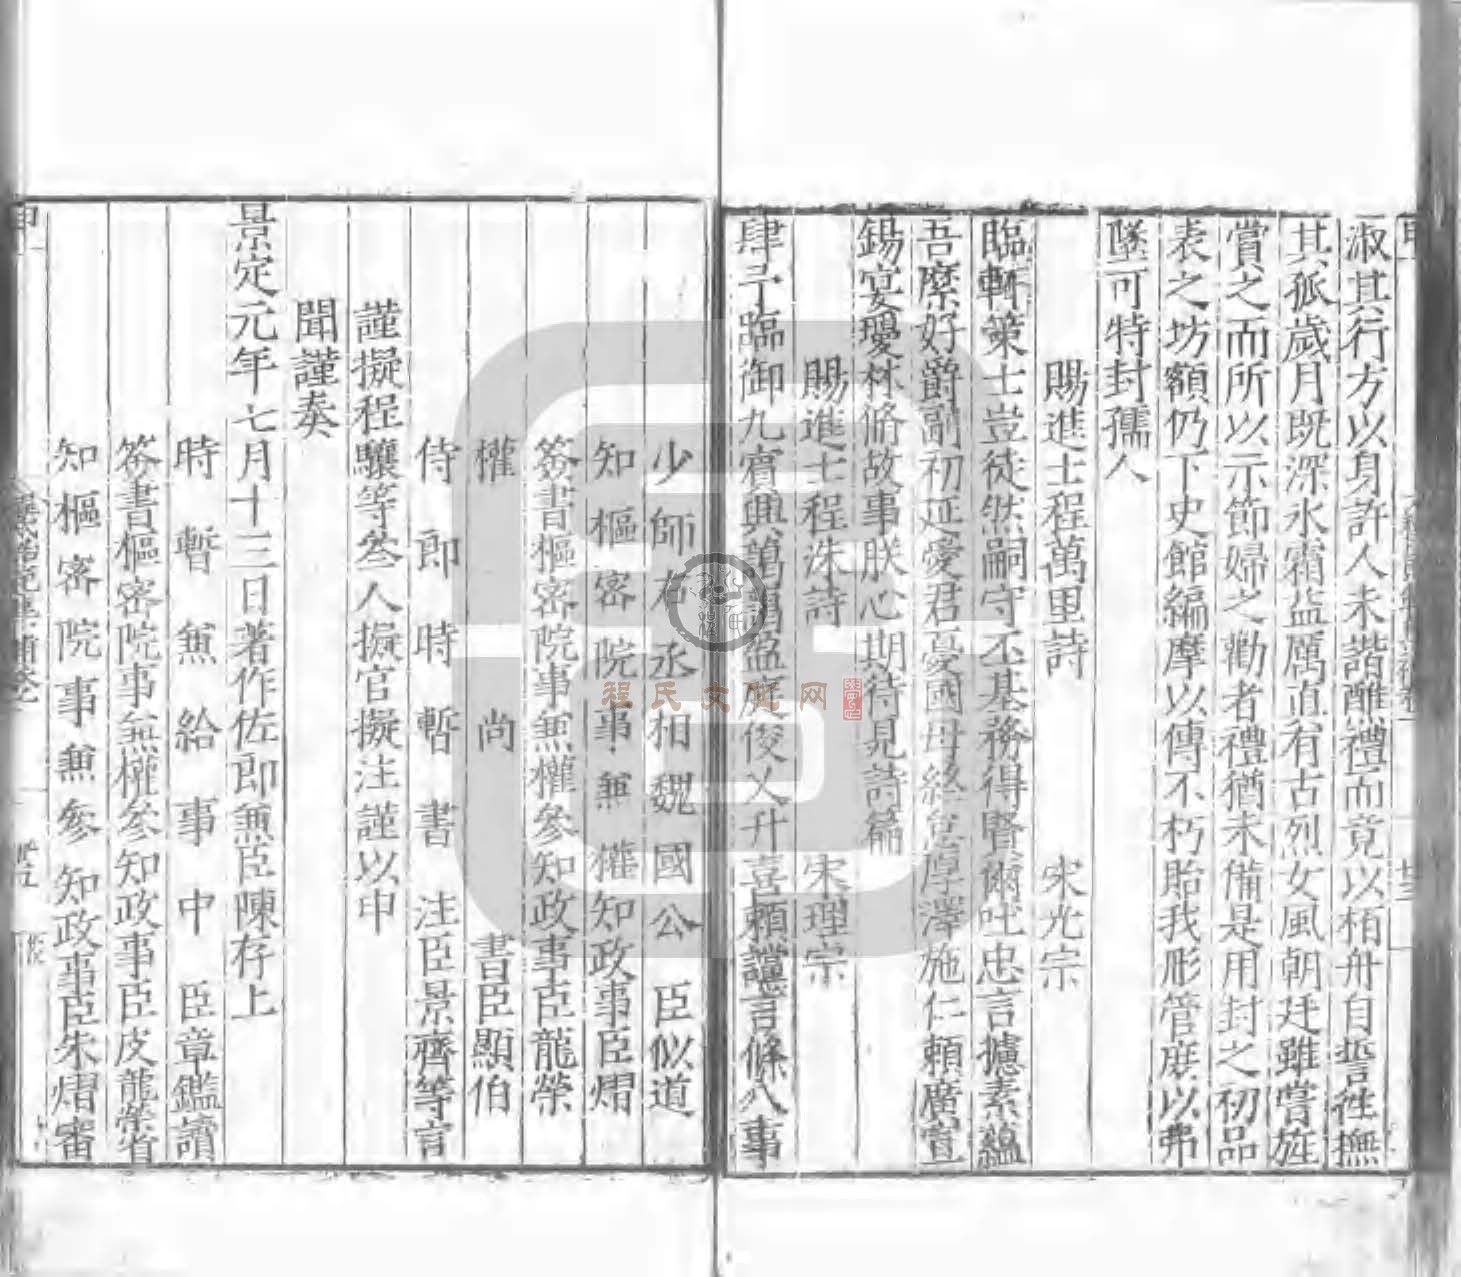 淑其行方以身許人未諧醮禮而竟以栢舟自誓徃撫
其孤歲月既深氷霜益厲直有古烈女風朝廷雖嘗旌
賞之而所以示節婦之勸者禮猶未備是用封之初品
表之坊額仍下史館編摩以傳不朽貽我彤管庶以弗
墜可特封孺人
賜進士程萬里詩 宋光宗
臨軒策士豈徒然嗣守丕基務得賢爾吐忠言攄素蘊
吾縻好爵副初延愛君憂國毋終怠厚澤施仁頼廣宣
錫宴瓊林脩故事朕心期待見詩篇
賜進士程洙詩 宋理宗
肆予臨御九賓興藹藹盈庭俊乂升喜頼讜言條八事
少師右丞相魏國公 臣似道
知樞密院事兼權知政事臣熠
簽書樞密院事兼權參知政事臣龍榮
權 尚 書臣顯伯
侍郎時暫書 注臣景齊等言
謹擬程驤等叁人擬官擬注謹以申
聞謹奏
景定元年七月十三日著作佐郎兼臣陳存上
時暫兼給事中 臣章鑑讀
簽書樞密院事兼權參知政事臣皮龍榮省
知樞密院事兼參知政事臣朱熠審
程氏文化网